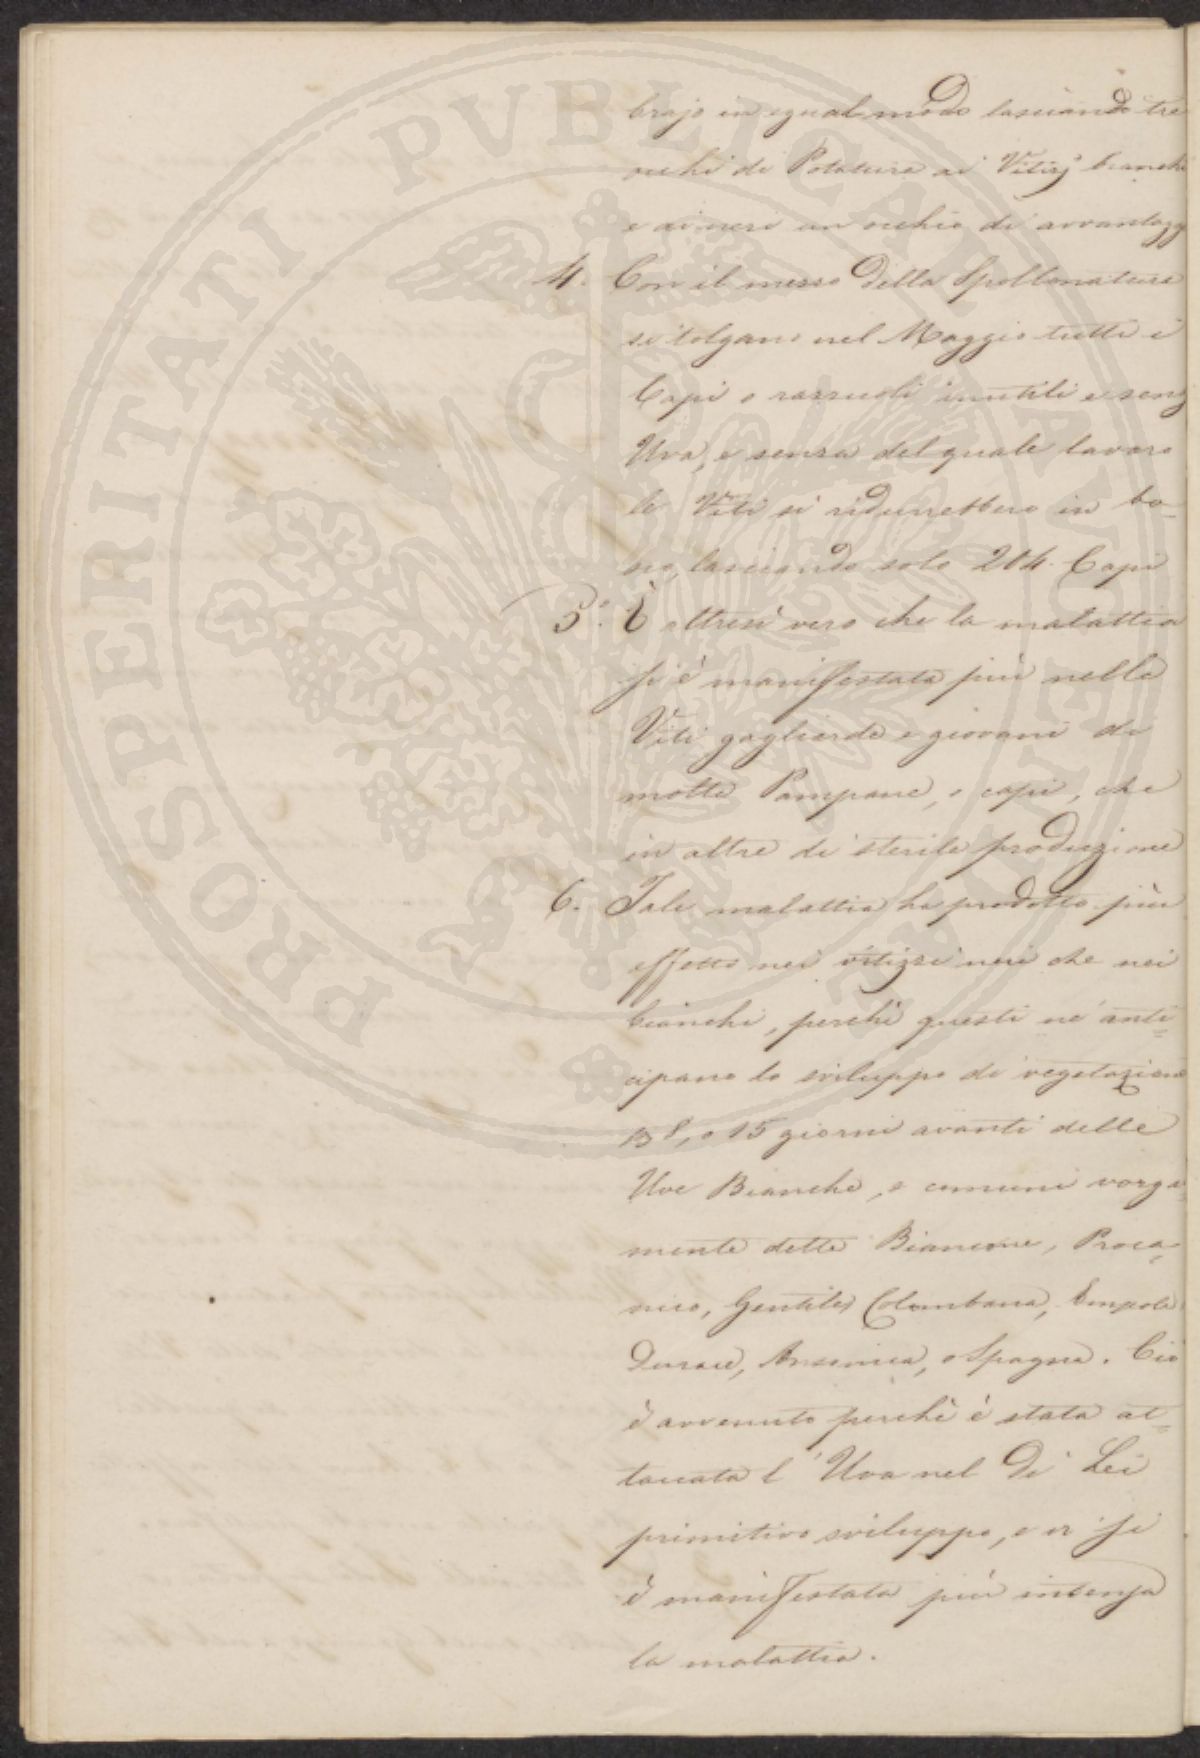 brajo in egual modo lasciando tre
occhi di Potatura ai Vitizj bianchi
e ai neri un occhio di avvantagg
4. Con il mezzo della Spollonatura
si tolgano nel Maggio tutti i
Capi o razzuoli inutili e senz
Uva, e senza del quale lavoro
le Viti si ridurrebbero in bo-
sco, lasciando solo 2 o 4 Capi
5.° È altresì vero che la malattia
si è manifestata più nelle
Viti gagliarde e giovani di
molte Pampane, o capi, che
in altre di sterile produzione
6. Tale malattia ha prodotto più
effetto nei vitizzi neri che nei
bianchi, perchè questi ne anti=
cipano lo sviluppo di vegetazione
o 15 giorni avanti delle
Uve Bianche, e comuni volga=
mente dette Biancone, Proca=
nico, Gentile, Colombana, Empola
Durace, Ansonica, o Spagna. Ciò
è avvenuto perchè è stata at=
taccata l'Uva nel Di Lei
primitivo sviluppo, e si
è manifestata più intensa
la malattia.
PROSPERITATI PVBLICAE AVGENDAE